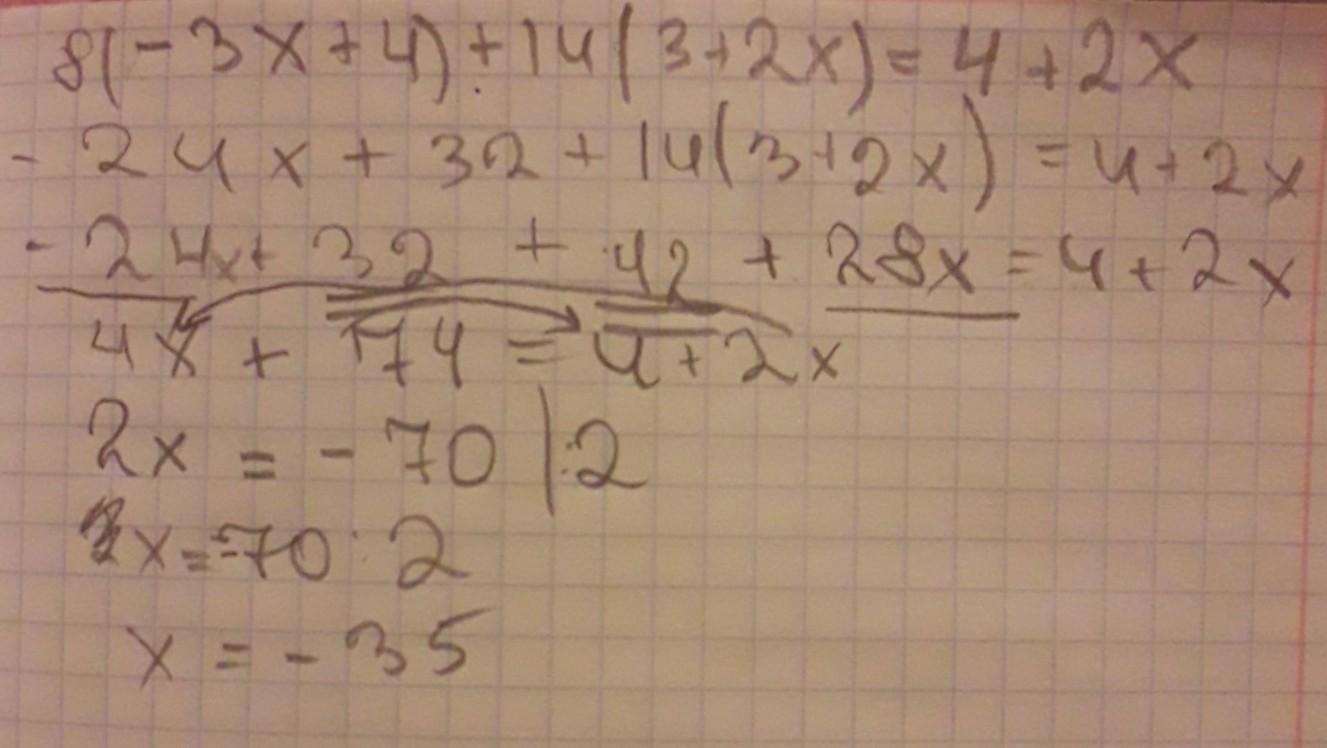 8(-3x+4)+14(3+2x)=4+2x
-24x+32+14(3+2x)=4+2x
-24x+32+42+28x=4+2x
4x+74=4+2x
2x=-70|:2
x=-70:2
x=-35